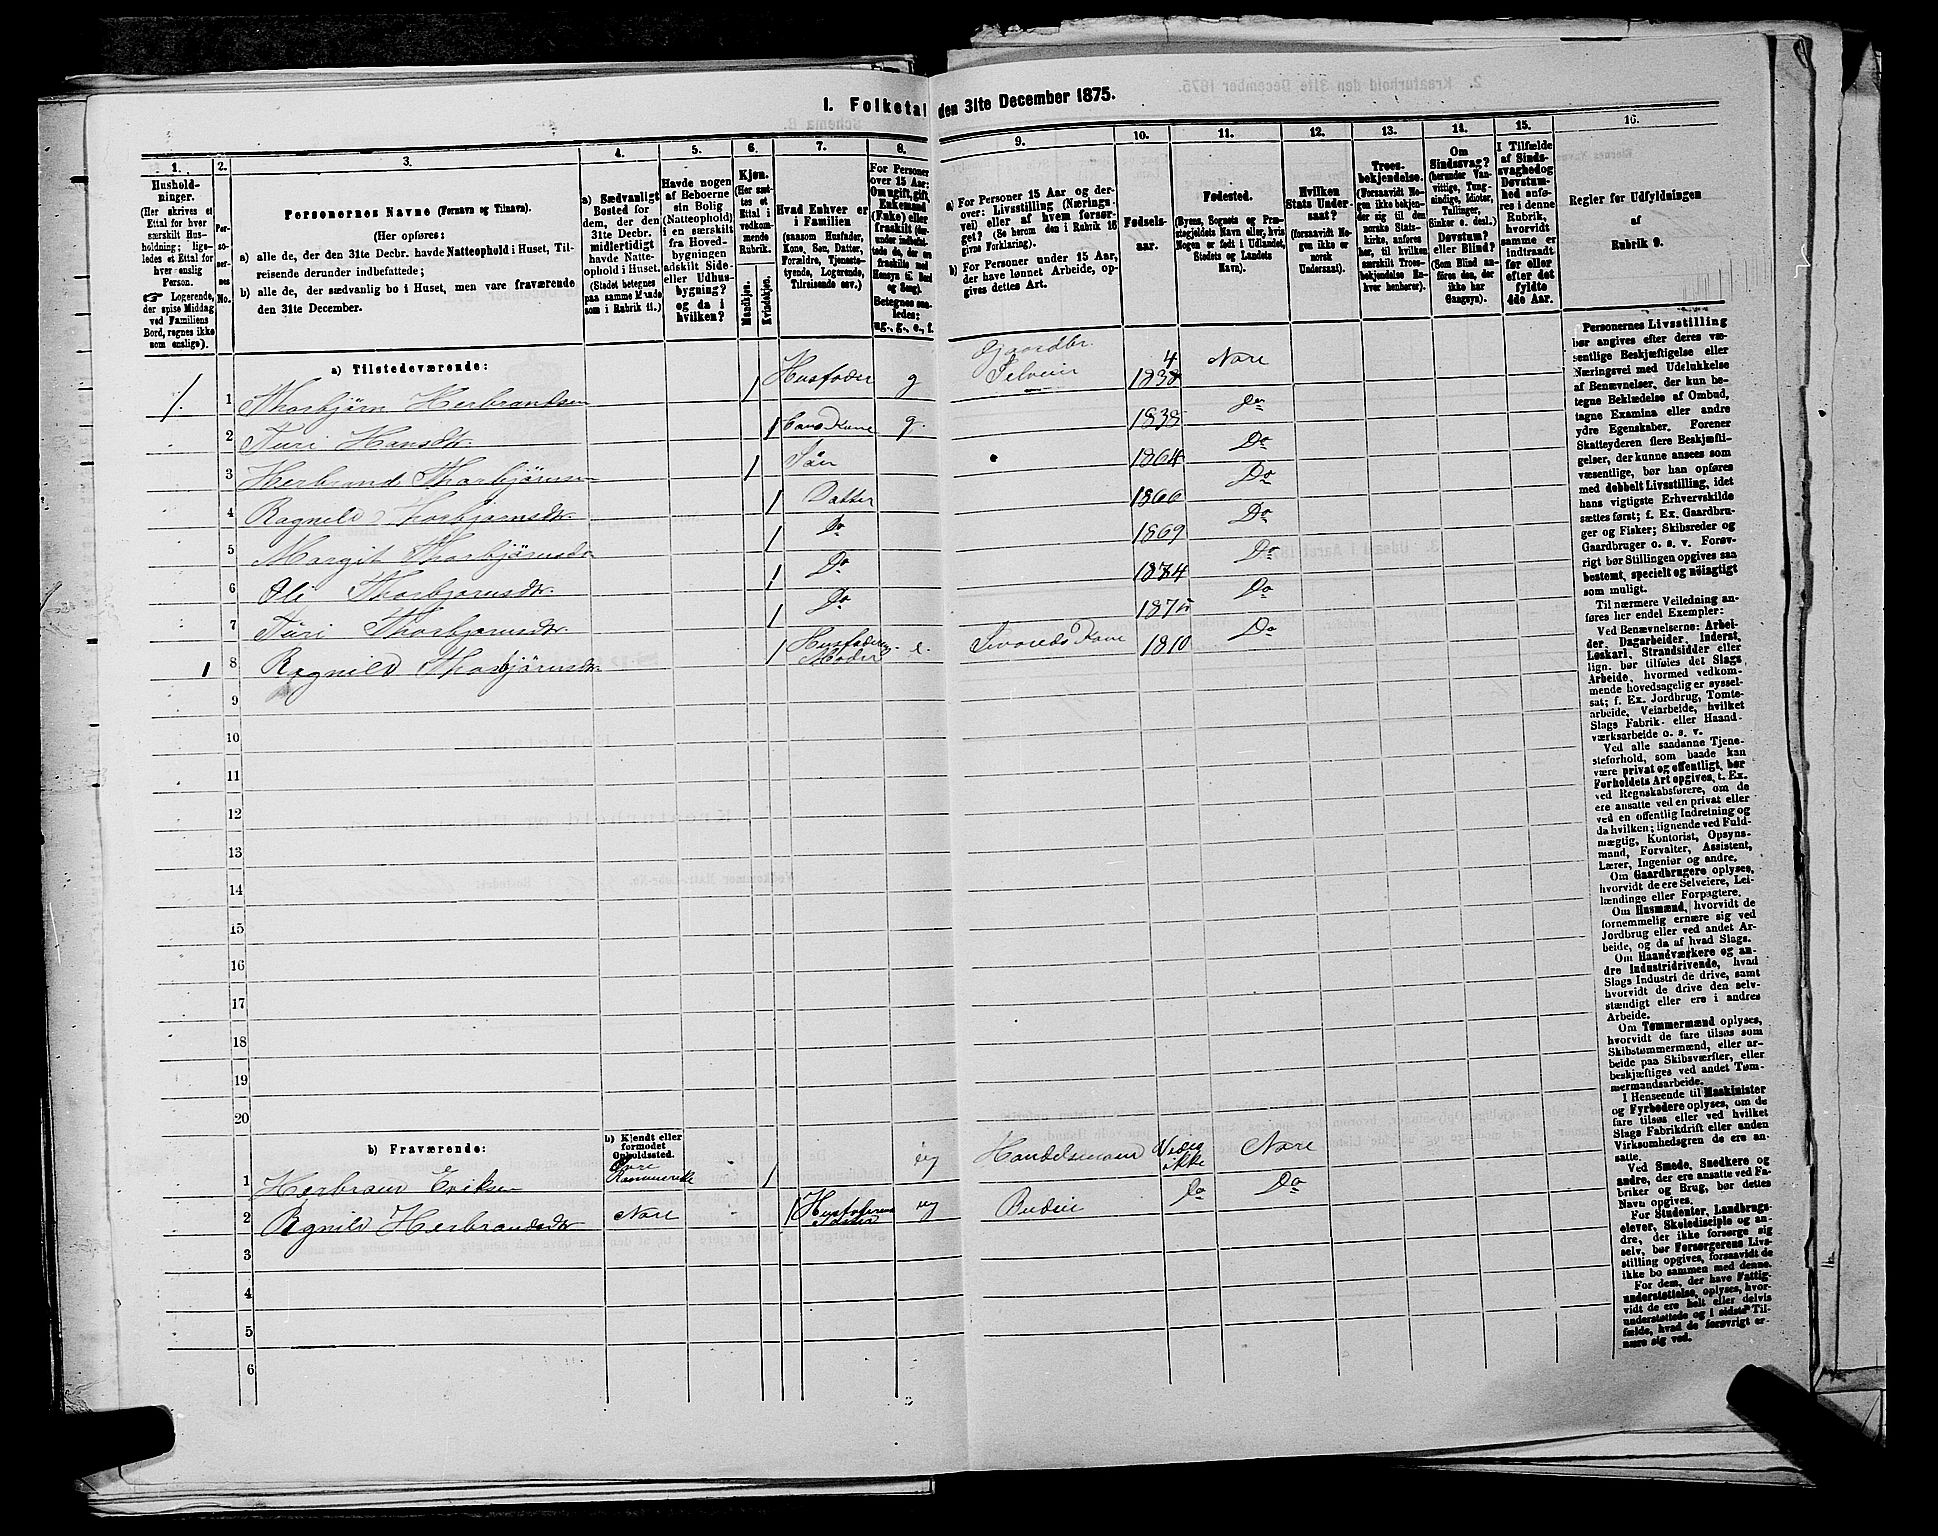 1. Folketal den 31te December 1875.
1. 2. 3. 4. 5. 6. 7. 8. 9. 10. 11. 12. 13. 14. 15. 16.
Hushold-
ninger.
(Her skrives et
Ettal for hver
særskilt Hus-
holdning; lige-
ledes et Ettal for
hver enslig
Person.
☞ Logerende,
der spise Middag
ved Familiens
Bord, regnes ikke
som enslige).
Per-
so-
ner-
nes
No.
Personernes Navne (Fornavn og Tilnavn).
(Her opføres:
a) alle de, der den 31te Decbr. havde Natteophold i Huset, Til-
reisende derunder indbefattede;
b) alle de, der sædvanlig bo i Huset, men vare fraværende
den 31te December.
a) Sædvanligt
Bosted for
dem, der den
31te Decbr.
midlertidigt
havde Natte-
ophold i Huset.
(Stedet betegnes
paa samme Maade
som i Rubrik 11.)
Havde nogen
af Beboerne
sin Bolig
(Natteophold)
i en særskilt
fra Hoved-
bygningen
adskilt Side-
eller Udhus-
bygning?
og da i
hvilken?
Kjøn.
(Her sæt-
tes et
Ettal i
vedkom-
mende
Rubrik.
Mandkjøn.
Kvindekjøn.
Hvad Enhver er
i Familien
(saasom Husfader,
Kone, Søn, Datter,
Forældre, Tjeneste-
tyende, Logerende,
Tilreisende osv.)
For Personer
over 15 Aar:
Om ugift, gift,
Enkemand
(Enke) eller
fraskilt
Betegnes saa-
ledes:
ug., g., e., f.
a) For Personer 15 Aar og der-
over: Livsstilling (Nærings-
vei) eller af hvem forsør-
get? (Se herom den i Rubrik 16
givne Forklaring).
b) For Personer under 15 Aar,
der have lønnet Arbeide, op-
gives dettes Art.
Fødsels-
aar.
Fødested.
(Byens, Sognets og Præ-
stegjeldets Navn eller, hvis
Nogen er født i Udlandet,
Stedets og Landets
Navn).
Hvilken
Stats Under-
saat?
(forsaavidt No-
gen ikke er
norsk
Undersaat).
Troes-
bekjendelse.
(Forsaavidt No-
gen ikke bekjen-
der sig til den
norske Stats-
kirke, anføres
her, til hvilken
særskilt Troes-
bekjendelse En-
hver henhører).
Om
Sindssvag?
(herunder Van-
vittige, Tung-
sindige, Idioter,
Tullinger,
Sinker o. desl.)
Døvstum?
eller Blind?
(Som Blind an-
føres den, der
ikke har
Gangsyn).
I Tilfælde
af Sinds-
svaghed og
Døvstum-
hed anfø-
res i denne
Rubrik,
hvorvidt
samme er
indtraadt
før eller
efter det
fyldte
4de Aar.
Regler for Udfyldningen
af
Rubrik 9.
a) Tilstedeværende:
1 1 Thorbjørn Herbrandsen 1 Husfader g Gaardbr. Selveier 1834 Nore
2 Turi Hansdtr 1 hans Kone g. 1838 Do
3 Herbrand Thorbjørnsen 1 Søn 1864 Do
4 Ragnild Thorbjørnsdtr. 1 Datter 1866 Do
5 Margit Thorbjørnsdtr 1 Do 1869 Do
6 Oli Thorbjørnsdtr 1 Do 1874 Do
7 Turi Thorbjørnsdtr 1 Do Do
1 8 Ragnild Thorbjørnsdtr. 1 Husfaderens Moder e. Kone 1810 Do
9
10
11
12
13
14
15
16
17
18
19
20
b) Fraværende:
b) Kjendt eller
formodet
Opholdssted.
1 Herbran Eriksen Nore 1 ug Handelsmand Vides ikke Nore
2 Ragnild Herbrandsdtr Nore 1 Husfaderens Søster ug Budeie Do Do
3
4
5
6
Personernes Livsstilling
bør angives efter deres væ-
sentlige Beskjæftigelse eller
Næringsvei med Udelukkelse
af Benævnelser, der kun be-
tegne Beklædelse af Ombud,
tagne Examina eller andre
ydre Egenskaber. Forener
Skatteyderen flere Beskjæfti-
gelser, der kunne ansees som
væsentlige, bør han opføres
med dobbelt Livsstilling, idet
hans vigtigste Erhvervskilde
sættes først; f. Ex. Gaardbru-
ger og Fisker; Skibsreder og
Gaardbruger o. s. v. Forøv-
rigt bør Stillingen opgives saa
bestemt, specielt og nöiagtigt
som muligt.
Til nærmere Veiledning an-
føres her endel Exempler:
Ved Benævnelserne: Arbei-
der, Dagarbeider, Inderst,
Løskarl, Strandsidder eller
lign. bør tilføies det Slags
Arbeide, hvormed vedkom-
mende hovedsagelig er syssel-
sat; f. Ex. Jordbrug, Tomte-
arbeide, Veiarbeide, hvilket
Slags Fabrik- eller Haand-
værksarbeide o. s. v.
Ved alle saadanne Tjene-
steforhold, som baade kan
være privat og offentligt, bør
Forholdets Art opgives, t. Ex.
ved Regnskabsførere, om de
ere ansatte ved en privat eller
ved en offentlig Indretning og
da hvilken; lignende ved Fuld-
mægtig, Kontorist, Opsyns-
mand, Forvalter, Assistent,
Lærer, Ingeniør og andre.
Om Gaardbrugere oplyses,
hvorvidt de ere Selveiere, Lei-
lændinge eller Forpagtere.
Om Husmænd, hvorvidt de
fornemmelig ernære sig ved
Jordbrug eller ved andet Ar-
beide, og da af hvad Slags.
Om Haandværkere og an-
dre Industridrivende, hvad
Slags Industri de drive, samt
hvorvidt de drive den selv-
stændigt eller ere i andres
Arbeide.
Om Tømmermænd oplyses,
hvorvidt de fare tilsøs som
Skibstømmermænd, eller ar-
beide paa Skibsværfter, eller
beskjæftiges ved andet Tøm-
mermandsarbeide.
I Henseende til Maskinister
og Fyrbødere oplyses, om de
fare tilsøs eller ved hvilket
Slags Fabrikdrift eller anden
Virksomhedsgren de ere an-
satte.
Ved Smede, Snedkere og
andre, der ere ansatte ved Fa-
briker og Brug, bør dettes
Navn opgives.
For Studenter, Landbrugs-
elever, Skoledisciple og an-
dre, der ikke forsørge sig
selv, bør Forsørgerens Livs-
stilling opgives, forsaavidt de
ikke bo sammen med denne.
For dem, der have Fattig-
understøttelse, oplyses, hvor-
vidt de ere helt eller delvis
understøttede og i sidste Til-
fælde, hvad de forøvrigt er-
nære sig ved.